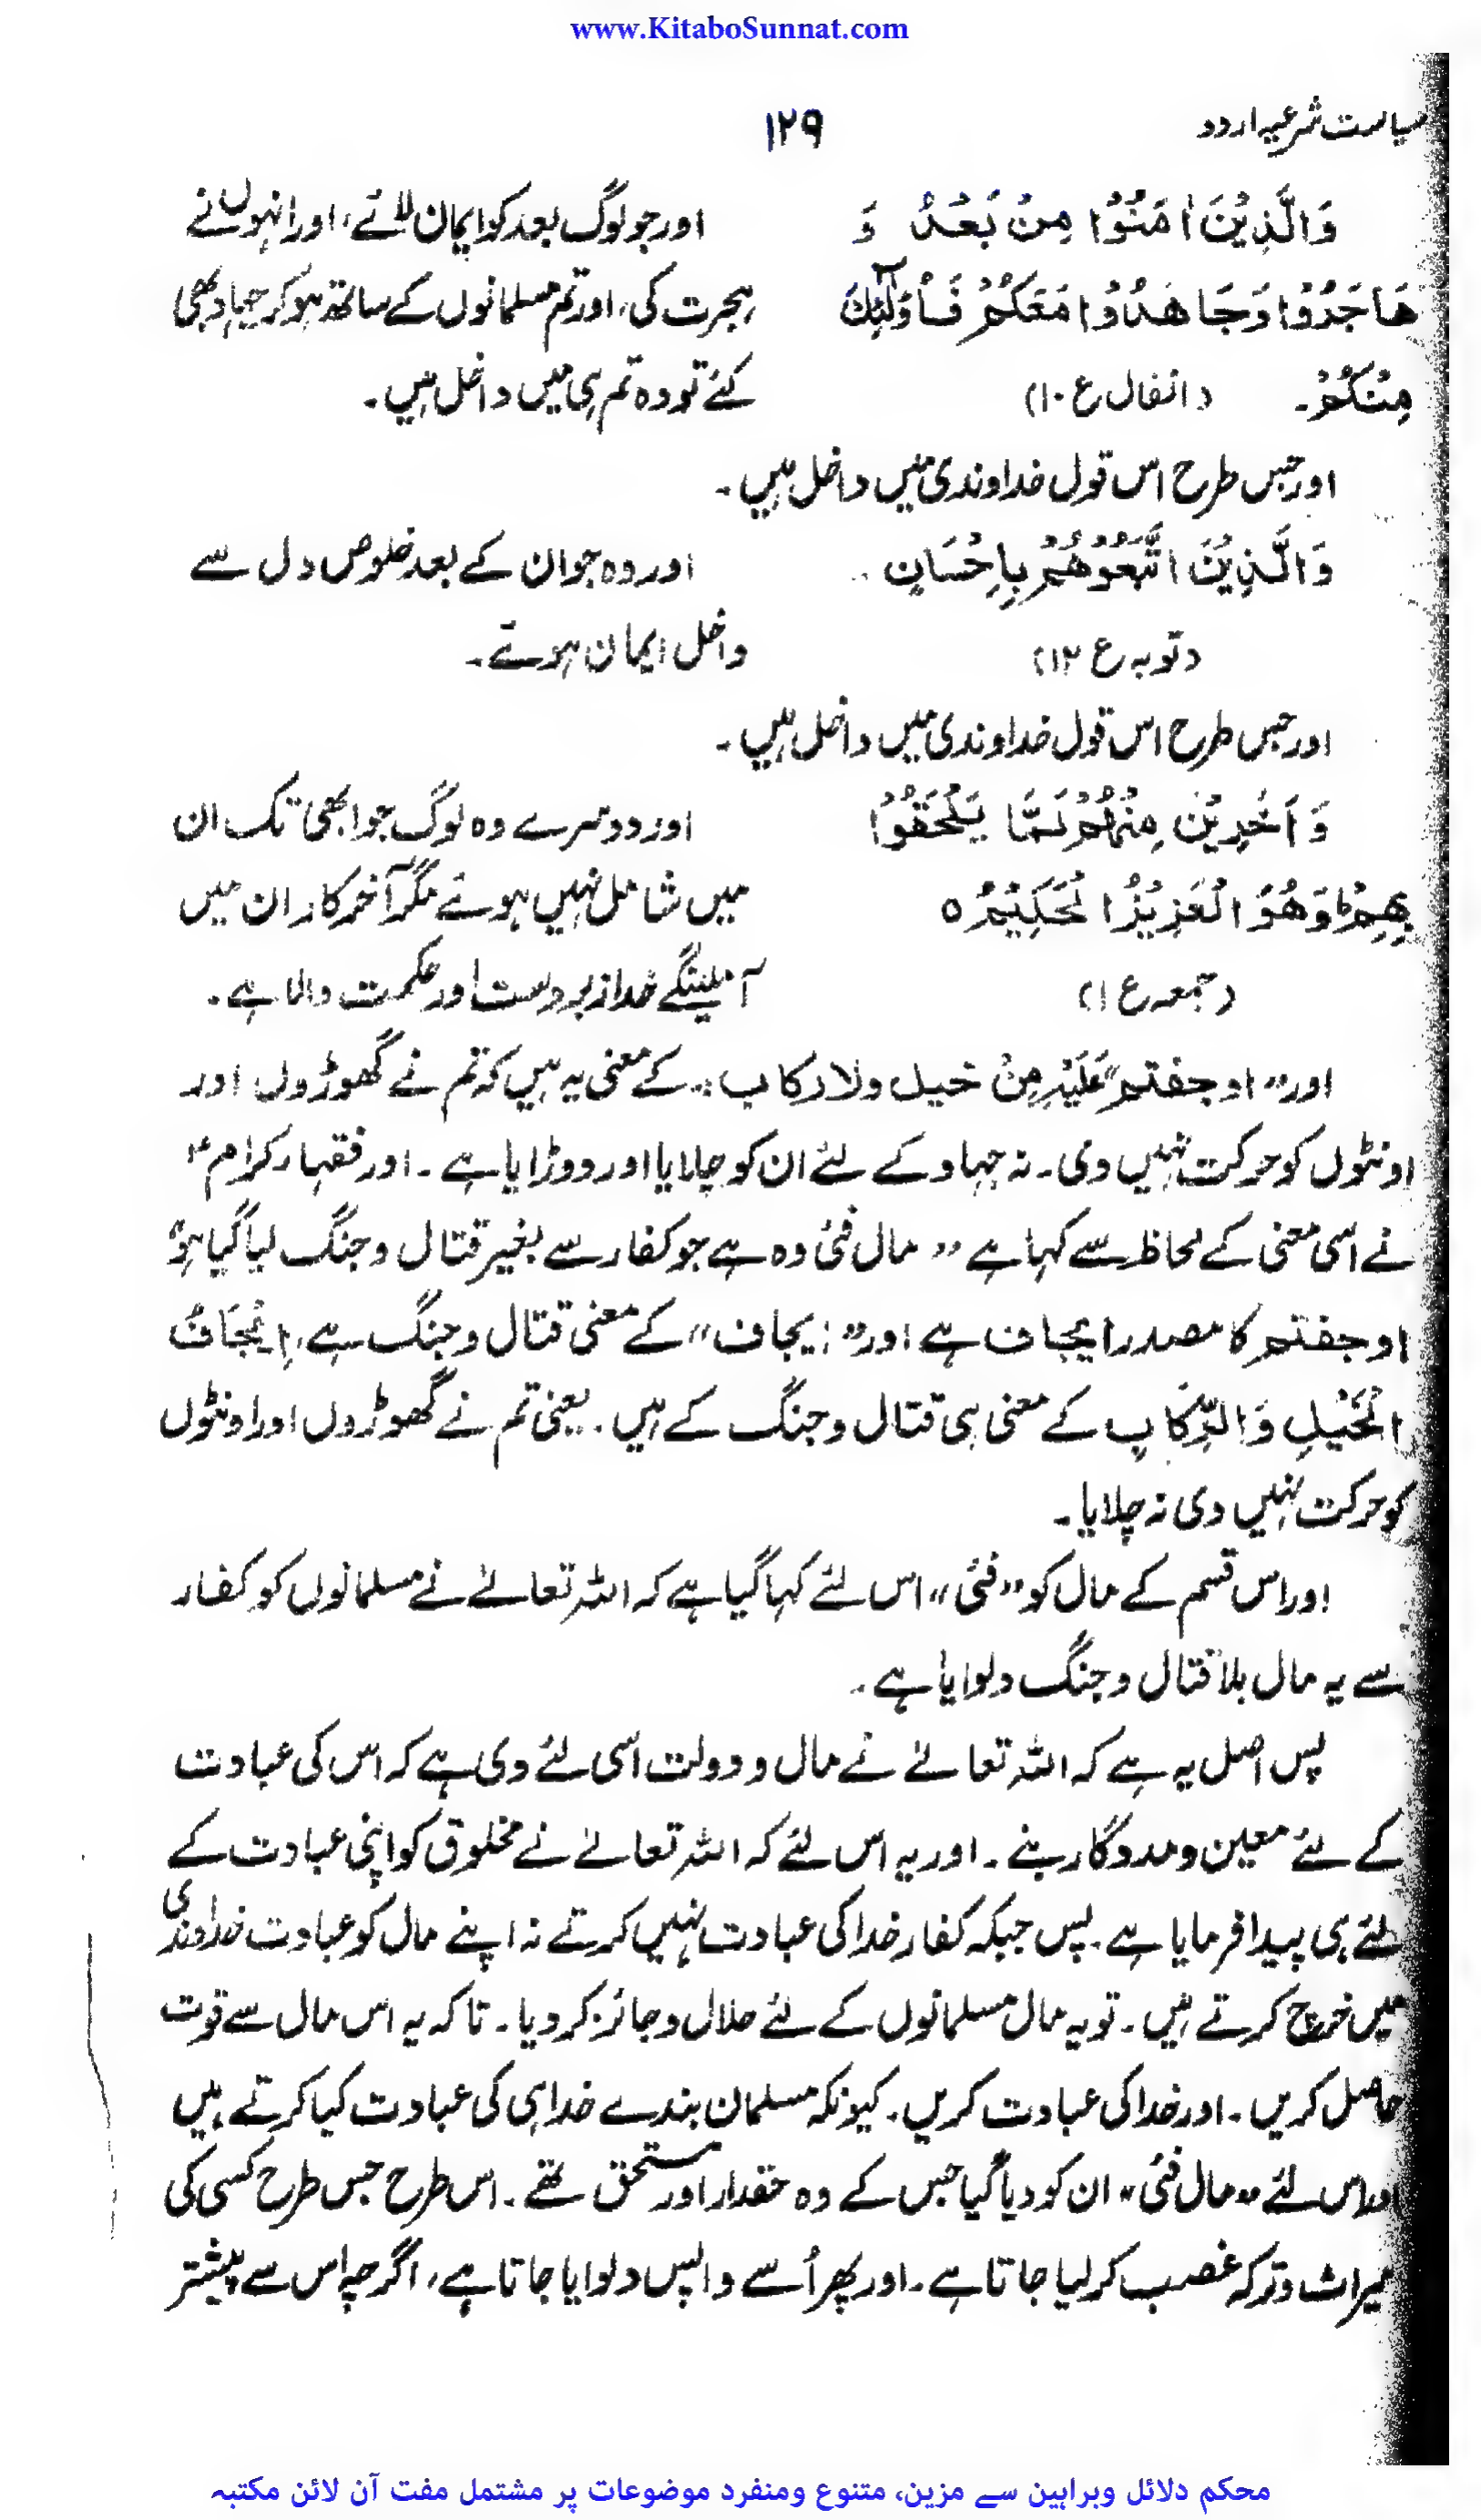 www.KitaboSunnat.com
سیاست شرعیہ اردو
۱۲۹
وَالَّذِيْنَ اٰمَنُوْا مِنْ بَعْدُ وَ
اور جو لوگ بعد کو ایمان لائے، اور انہوں نے
هَاجَرُوْا وَجَاهَدُوْا مَعَكُمْ فَاُولٰٓئِكَ
ہجرت کی، اور تم مسلمانوں کے ساتھ ہو کر جہاد بھی
مِنْكُمْ۔ (انفال ع ۱۰)
کئے تو وہ تم ہی میں داخل ہیں۔
اور جس طرح اس قول خداوندی میں داخل ہیں۔
وَالَّذِيْنَ اتَّبَعُوْهُمْ بِاِحْسَانٍ
اور وہ جو ان کے بعد خلوص دل سے
(توبہ ع ۱۲)
داخل ایمان ہوتے۔
اور جس طرح اس قول خداوندی میں داخل ہیں۔
وَاٰخَرِيْنَ مِنْهُمْ لَمَّا يَلْحَقُوْا
اور دوسرے وہ لوگ جو ابھی تک ان
بِهِمْ ؕ وَهُوَ الْعَزِيْزُ الْحَكِيْمُ ہ
میں شامل نہیں ہوئے مگر آخر کار ان میں
(جمعہ ع ۱)
آ ملینگے خدا زبردست اور حکمت والا ہے۔
اور ”اوجفتم عَلَيْهِ مِنْ خیل ولا رکاب“ کے معنی یہ ہیں کہ تم نے گھوڑوں اور
اونٹوں کو حرکت نہیں دی۔ نہ جہاد کے لئے ان کو چلایا اور دوڑایا ہے۔ اور فقہار کرام رح
نے اسی معنی کے لحاظ سے کہا ہے ”مال فئی وہ ہے جو کفار سے بغیر قتال و جنگ لیا گیا ہو“
اوجفتم کا مصدر ایجاف ہے اور ”ایجاف“ کے معنی قتال و جنگ ہے، اِيْجَافُ
الْخَيْلِ وَالرِّكَابِ کے معنی ہی قتال و جنگ کے ہیں۔ یعنی تم نے گھوڑوں اور اونٹوں
کو حرکت نہیں دی نہ چلایا۔
اور اس قسم کے مال کو ”فئی“ اس لئے کہا گیا ہے کہ اللہ تعالےٰ نے مسلمانوں کو کفار
سے یہ مال بلا قتال و جنگ دلوایا ہے۔
پس اصل یہ ہے کہ اللہ تعالےٰ نے مال و دولت اسی لئے دی ہے کہ اس کی عبادت
کے لئے معین و مددگار بنے۔ اور یہ اس لئے کہ اللہ تعالےٰ نے مخلوق کو اپنی عبادت کے
لئے ہی پیدا فرمایا ہے۔ پس جبکہ کفار خدا کی عبادت نہیں کرتے نہ اپنے مال کو عبادت خداوندی
میں خرچ کرتے ہیں۔ تو یہ مال مسلمانوں کے لئے حلال و جائز کر دیا۔ تاکہ یہ اس مال سے قوت
حاصل کریں۔ اور خدا کی عبادت کریں۔ کیونکہ مسلمان بندے خدا ہی کی عبادت کیا کرتے ہیں
اور اس لئے ”مال فئی“ ان کو دیا گیا جس کے وہ حقدار اور مستحق تھے۔ اس طرح جس طرح کسی کی
میراث و ترکہ غصب کر لیا جاتا ہے۔ اور پھر اُسے واپس دلوایا جاتا ہے، اگرچہ اس سے پیشتر
محکم دلائل وبراہین سے مزین، متنوع ومنفرد موضوعات پر مشتمل مفت آن لائن مکتبہ